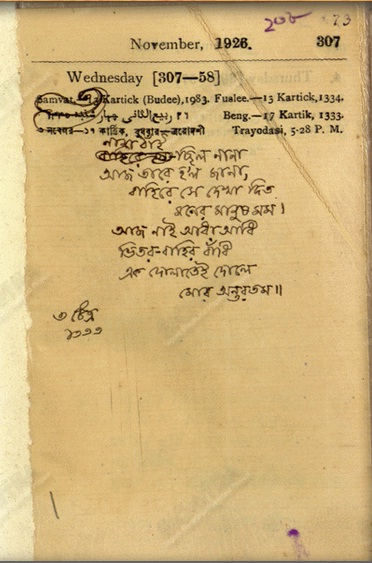 ২০৮ 73
November, 1926. 307
Wednesday [307—58]
Samvat— Kartick (Budee), 1983. Fuslee.—13 Kartick, 1334.
Beng.—17 Kartik, 1333.
৩ নবেম্বর—১৭ কার্ত্তিক, বুধবার—ত্রয়োদশী Trayodasi, 5·28 P. M.
ছিল নানা
আজ তারে হল জানা,
বাহিরে সে দেখা দিত
মনের মানুষ মম।
আজ নাই আধা আধি
ভিতর-বাহির বাঁধি
এক দোলাতেই দোলে
মোর অন্তরতম॥
৩ চৈত্র
১৩৩৩